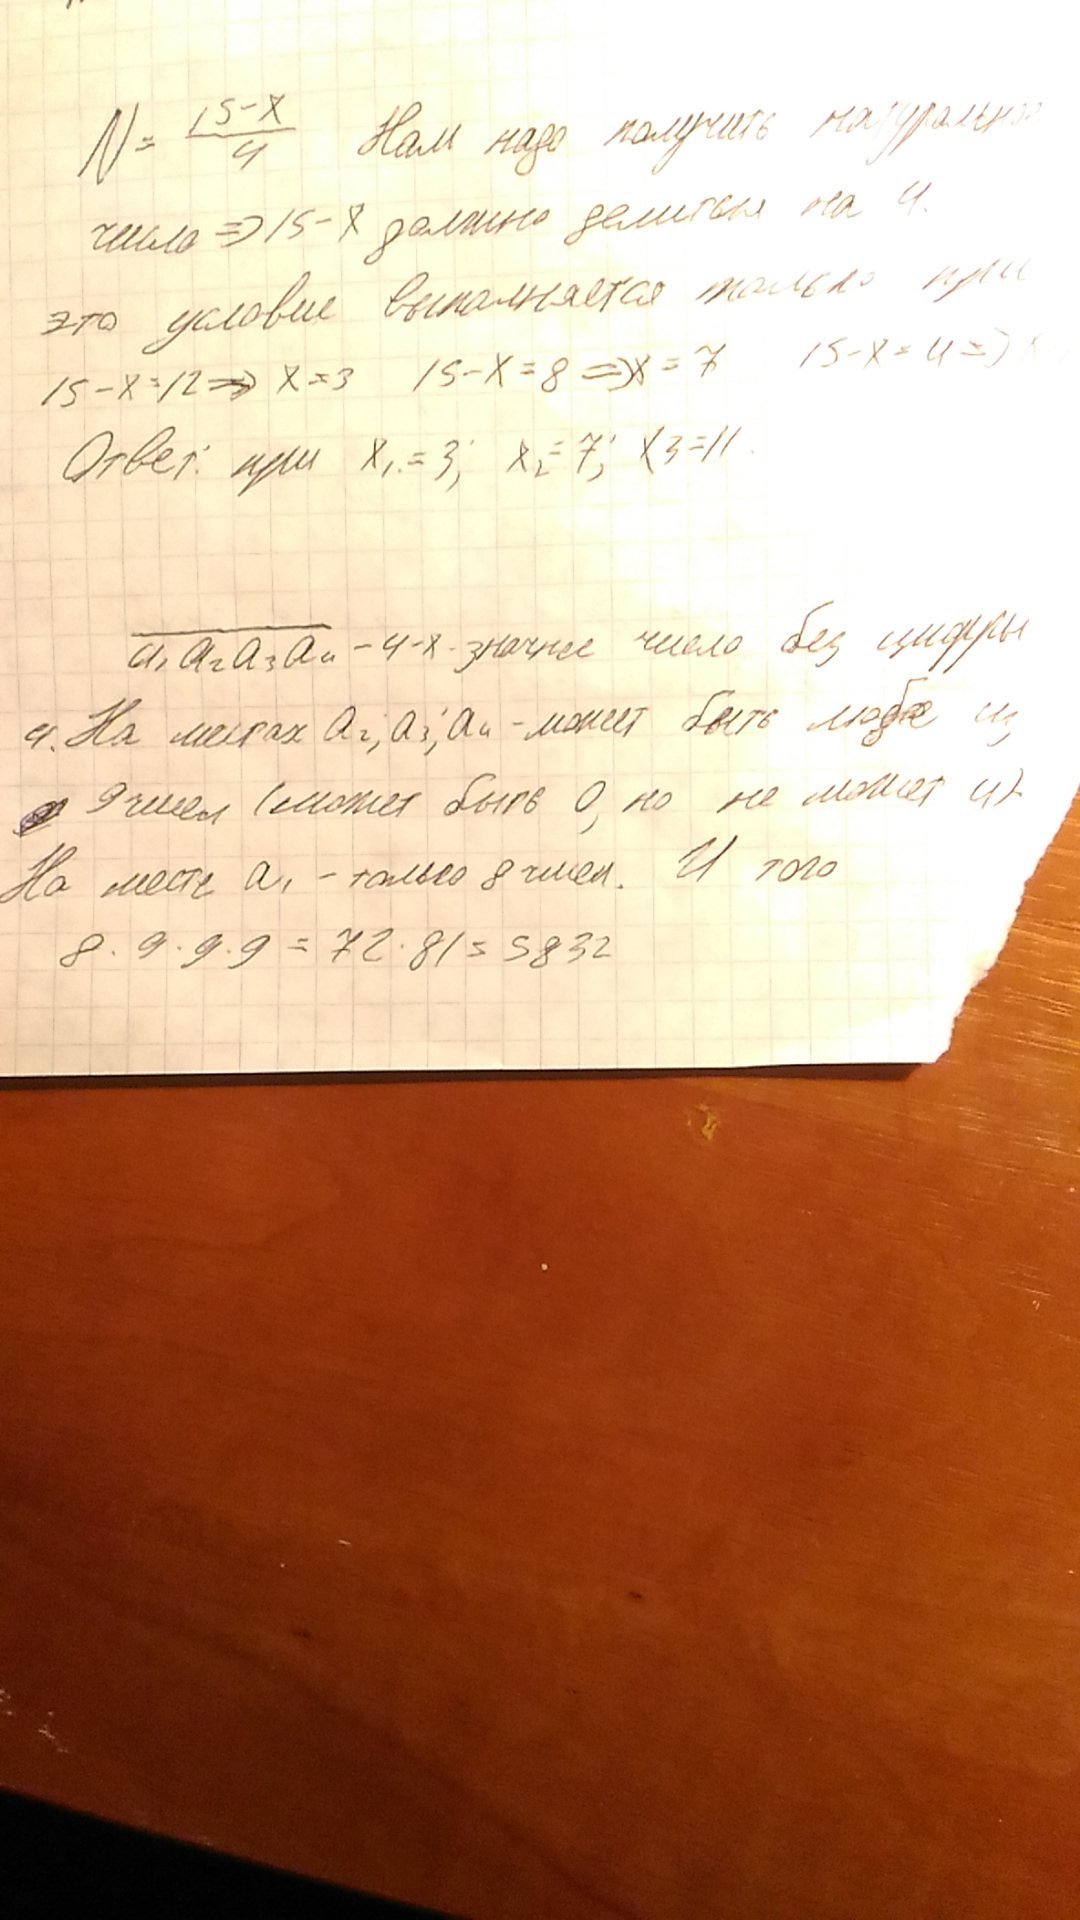 N = (15-x)/4 Нам надо получить натурально
число => 15-x должно делиться на 4.
это условие выполняется только при
15-x=12 => x=3 15-x=8 => x=7 15-x=4 =>
Ответ: при x₁=3; x₂=7; x3=11.
a₁a₂a₃a₄ - 4-х значное число без цифры
4. На местах a₂; a₃; a₄ - может быть любое из
9 чисел (может быть 0, но не может 4).
На месте a₁ - только 8 чисел. И того
8·9·9·9 = 72·81 = 5832